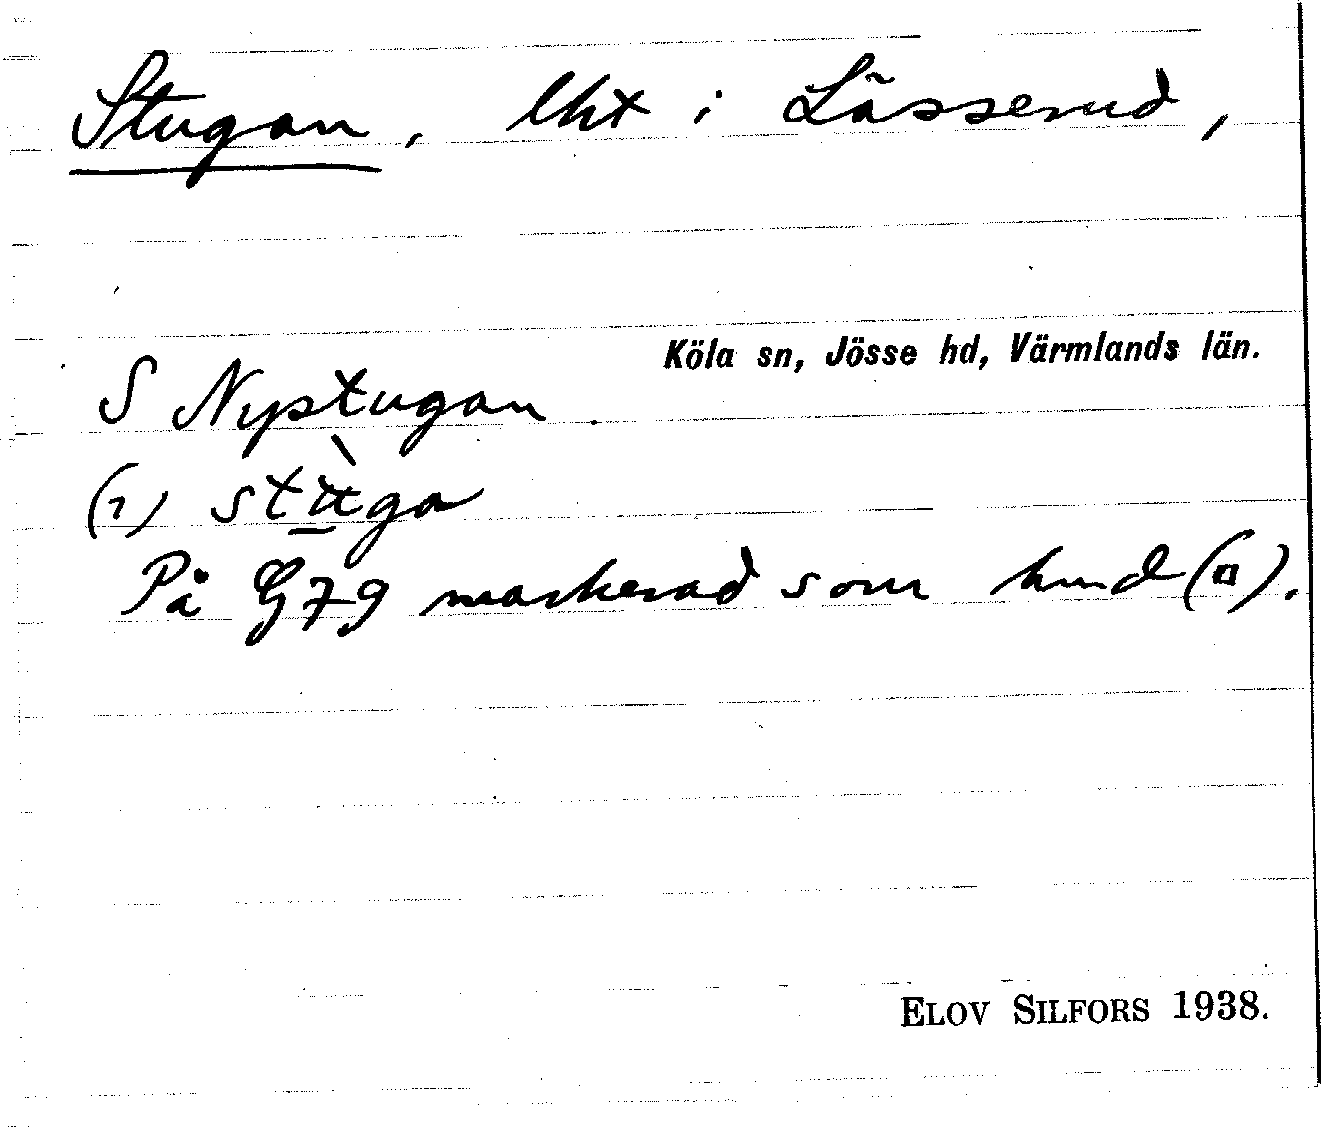 Stugan, lht i Lässerud,
Köla sn, Jösse hd, Värmlands län.
S Nystugan.
(1) stùga
På G79 markerad som hmd (▫).
ELOV SILFORS 1938.